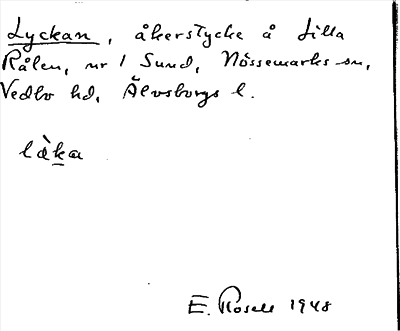 Lyckan, åkerstycke å Lilla
Rålen, nr 1 Sund, Nössemarks sn,
Vedbo hd, Älvsborgs l.
làka
E. Rosell 1948